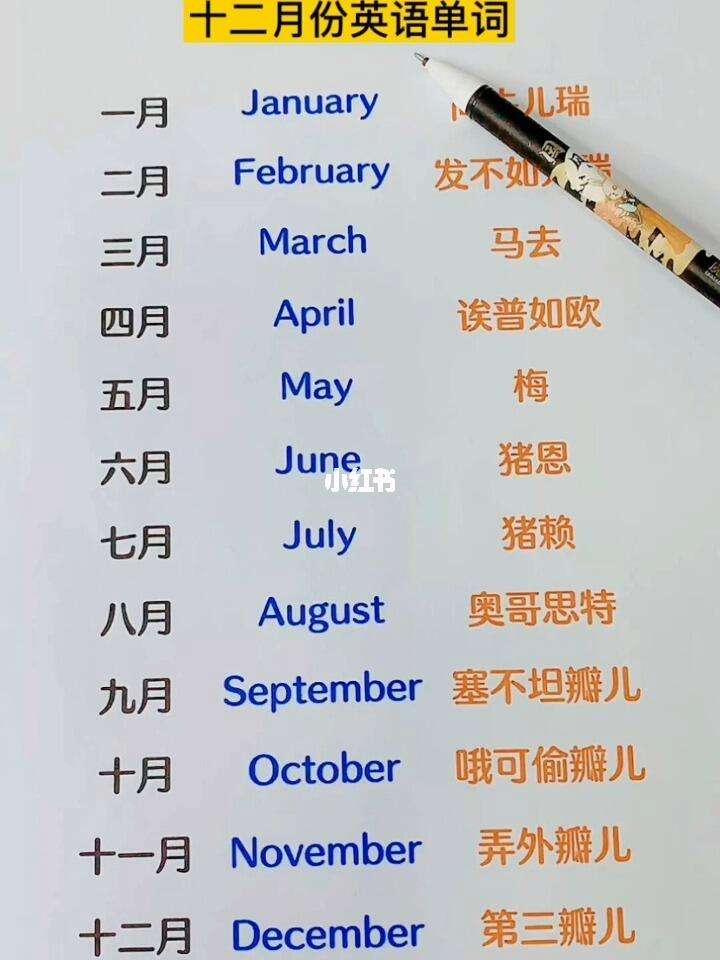 十二月份英语单词
一月 January 儿瑞
二月 February 发不如
三月 March 马去
四月 April 诶普如欧
五月 May 梅
六月 June 猪恩
小红书
七月 July 猪赖
八月 August 奥哥思特
九月 September 塞不坦瓣儿
十月 October 哦可偷瓣儿
十一月 November 弄外瓣儿
十二月 December 第三瓣儿